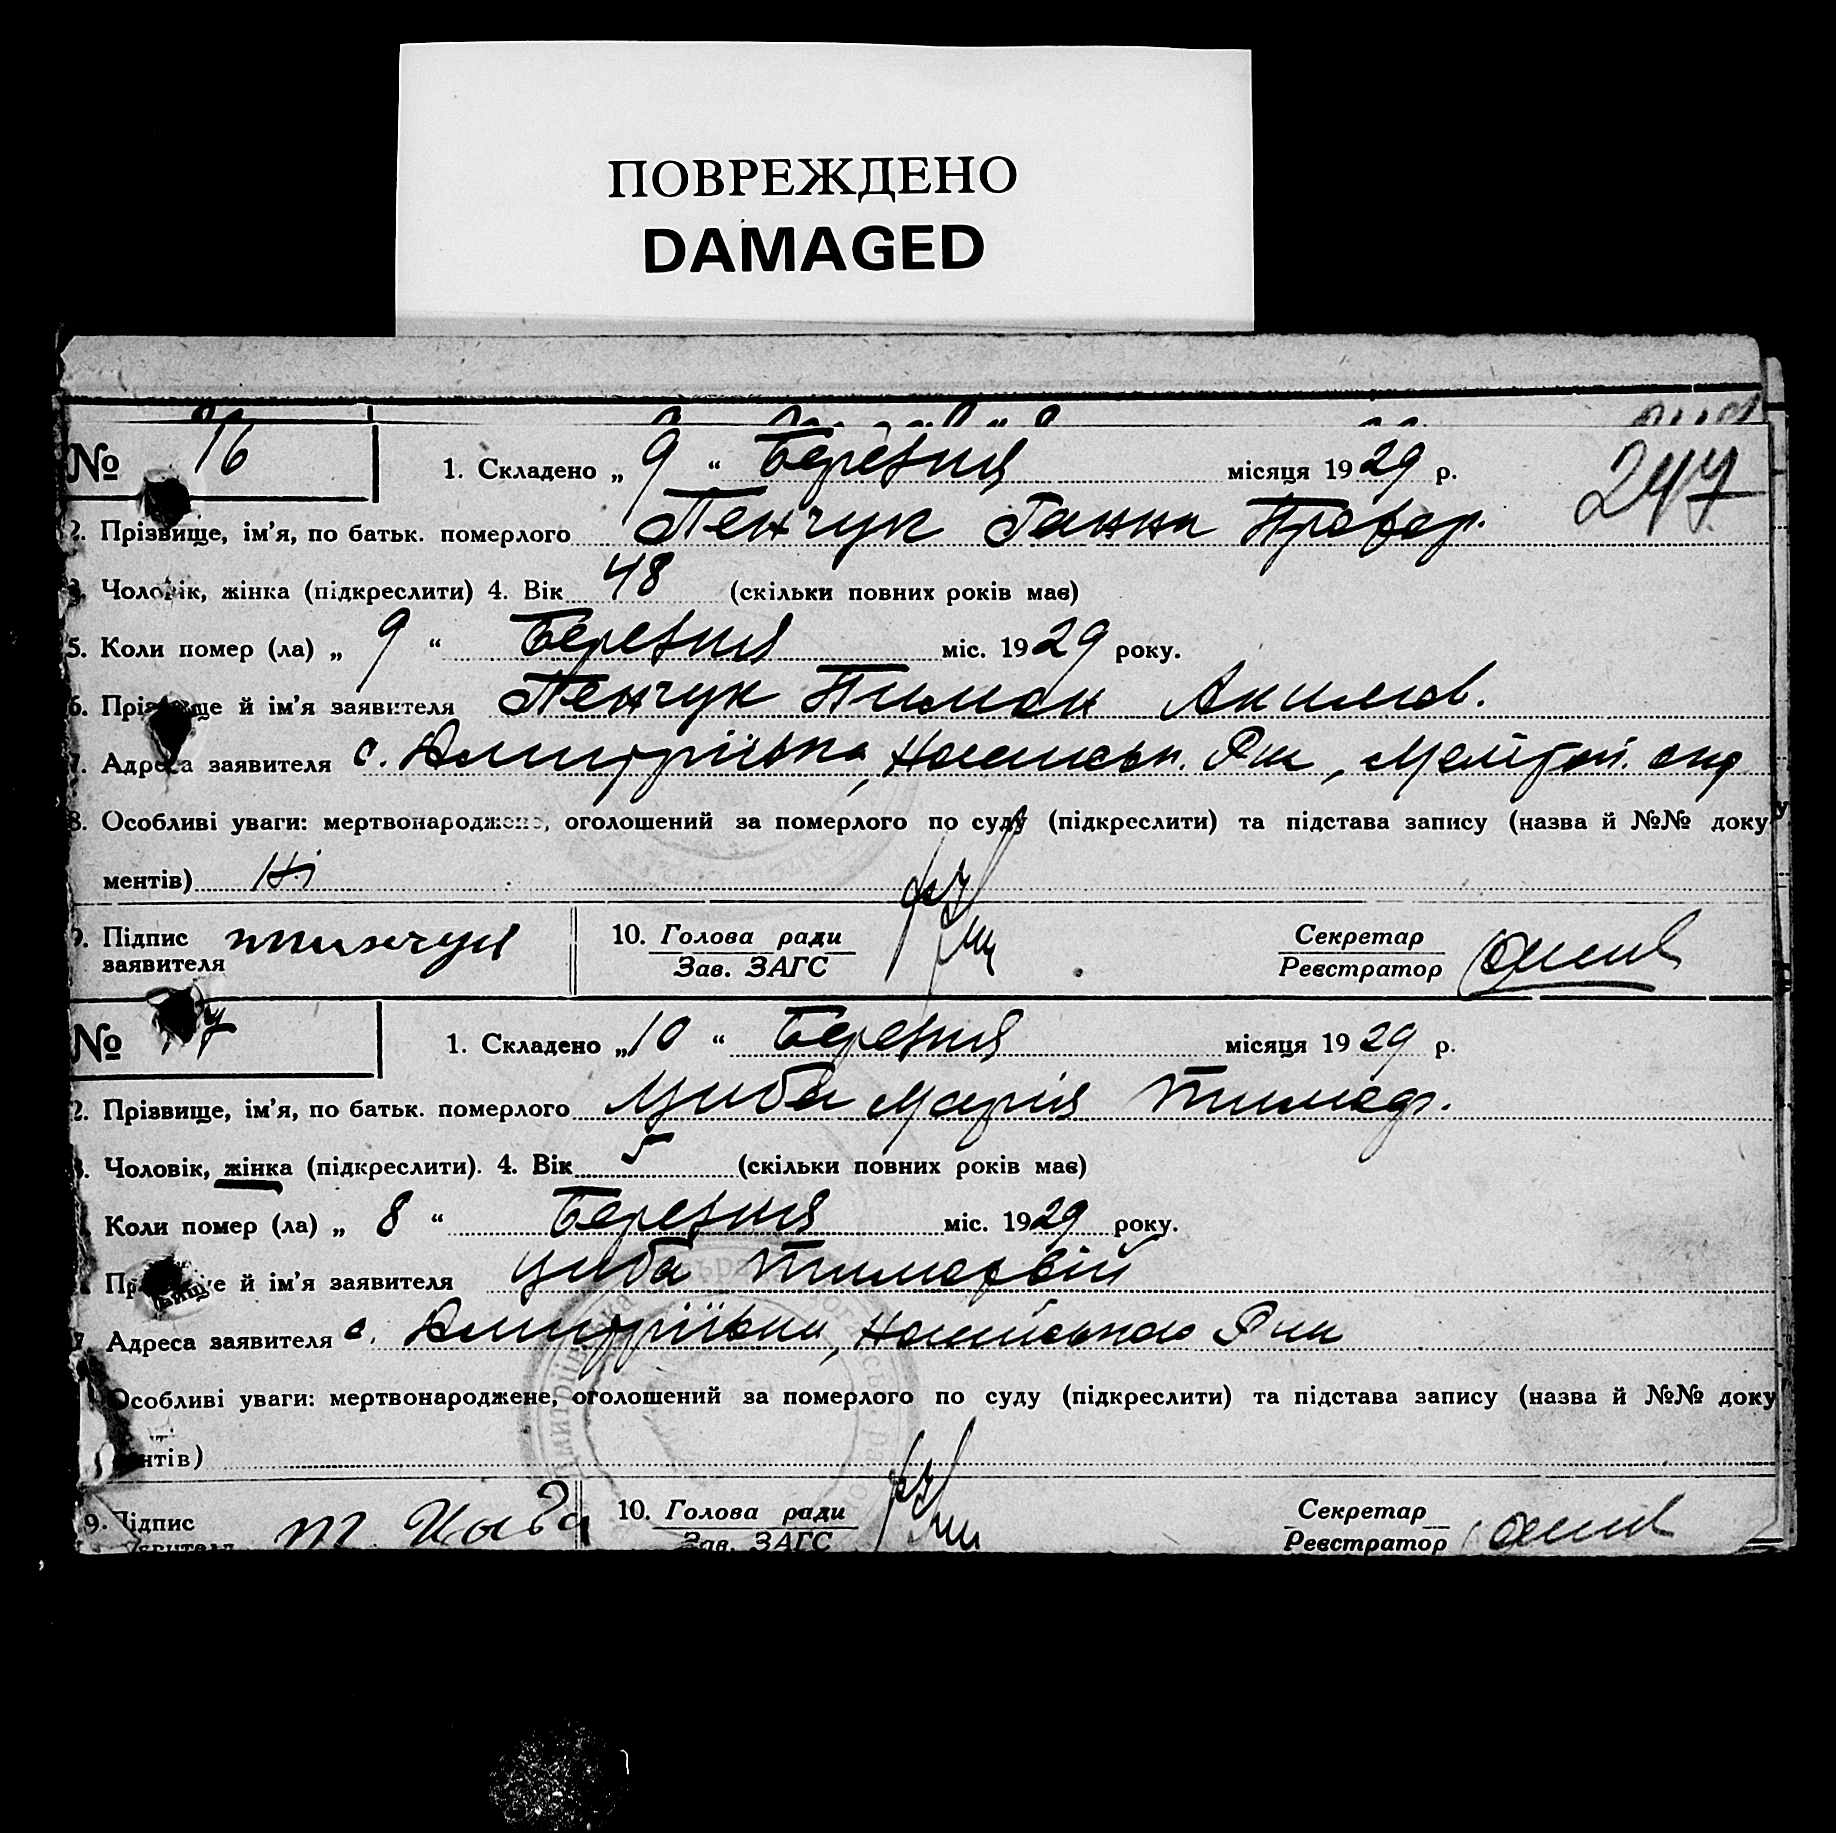 ПОВРЕЖДЕНО
DAMAGED
№ 16 1. Складено „ 9 “ Березня місяця 1929 р. 247
2. Прізвище, ім’я, по батьк. померлого Пенчук Ганна
3. Чоловік, жінка (підкреслити) 4. Вік 48 (скільки повних років має)
5. Коли помер (ла) „ 9 “ Березня міс. 1929 року.
6. Прізвище й ім’я заявителя Пенчук
7. Адреса заявителя с. Дмитрівка,
8. Особливі уваги: мертвонароджене, оголошений за померлого по суду (підкреслити) та підстава запису (назва й №№ доку
ментів) Ні
9. Підпис
заявителя
10. Голова ради
Зав. ЗАГС
Секретар
Реєстратор
№ 17 1. Складено „ 10 “ Березня місяця 1929 р.
2. Прізвище, ім’я, по батьк. померлого Циба Марія Тимоф.
3. Чоловік, жінка (підкреслити). 4. Вік 5 (скільки повних років має)
Коли помер (ла) „ 8 “ Березня міс. 1929 року.
Прізвище й ім’я заявителя Циба Тимофвій
7. Адреса заявителя с. Дмитріївки,
Особливі уваги: мертвонароджене, оголошений за померлого по суду (підкреслити) та підстава запису (назва й №№ доку
ментів)
9. Підпис
заявителя
Т. Цыба
10. Голова ради
Зав. ЗАГС
Секретар
Реєстратор